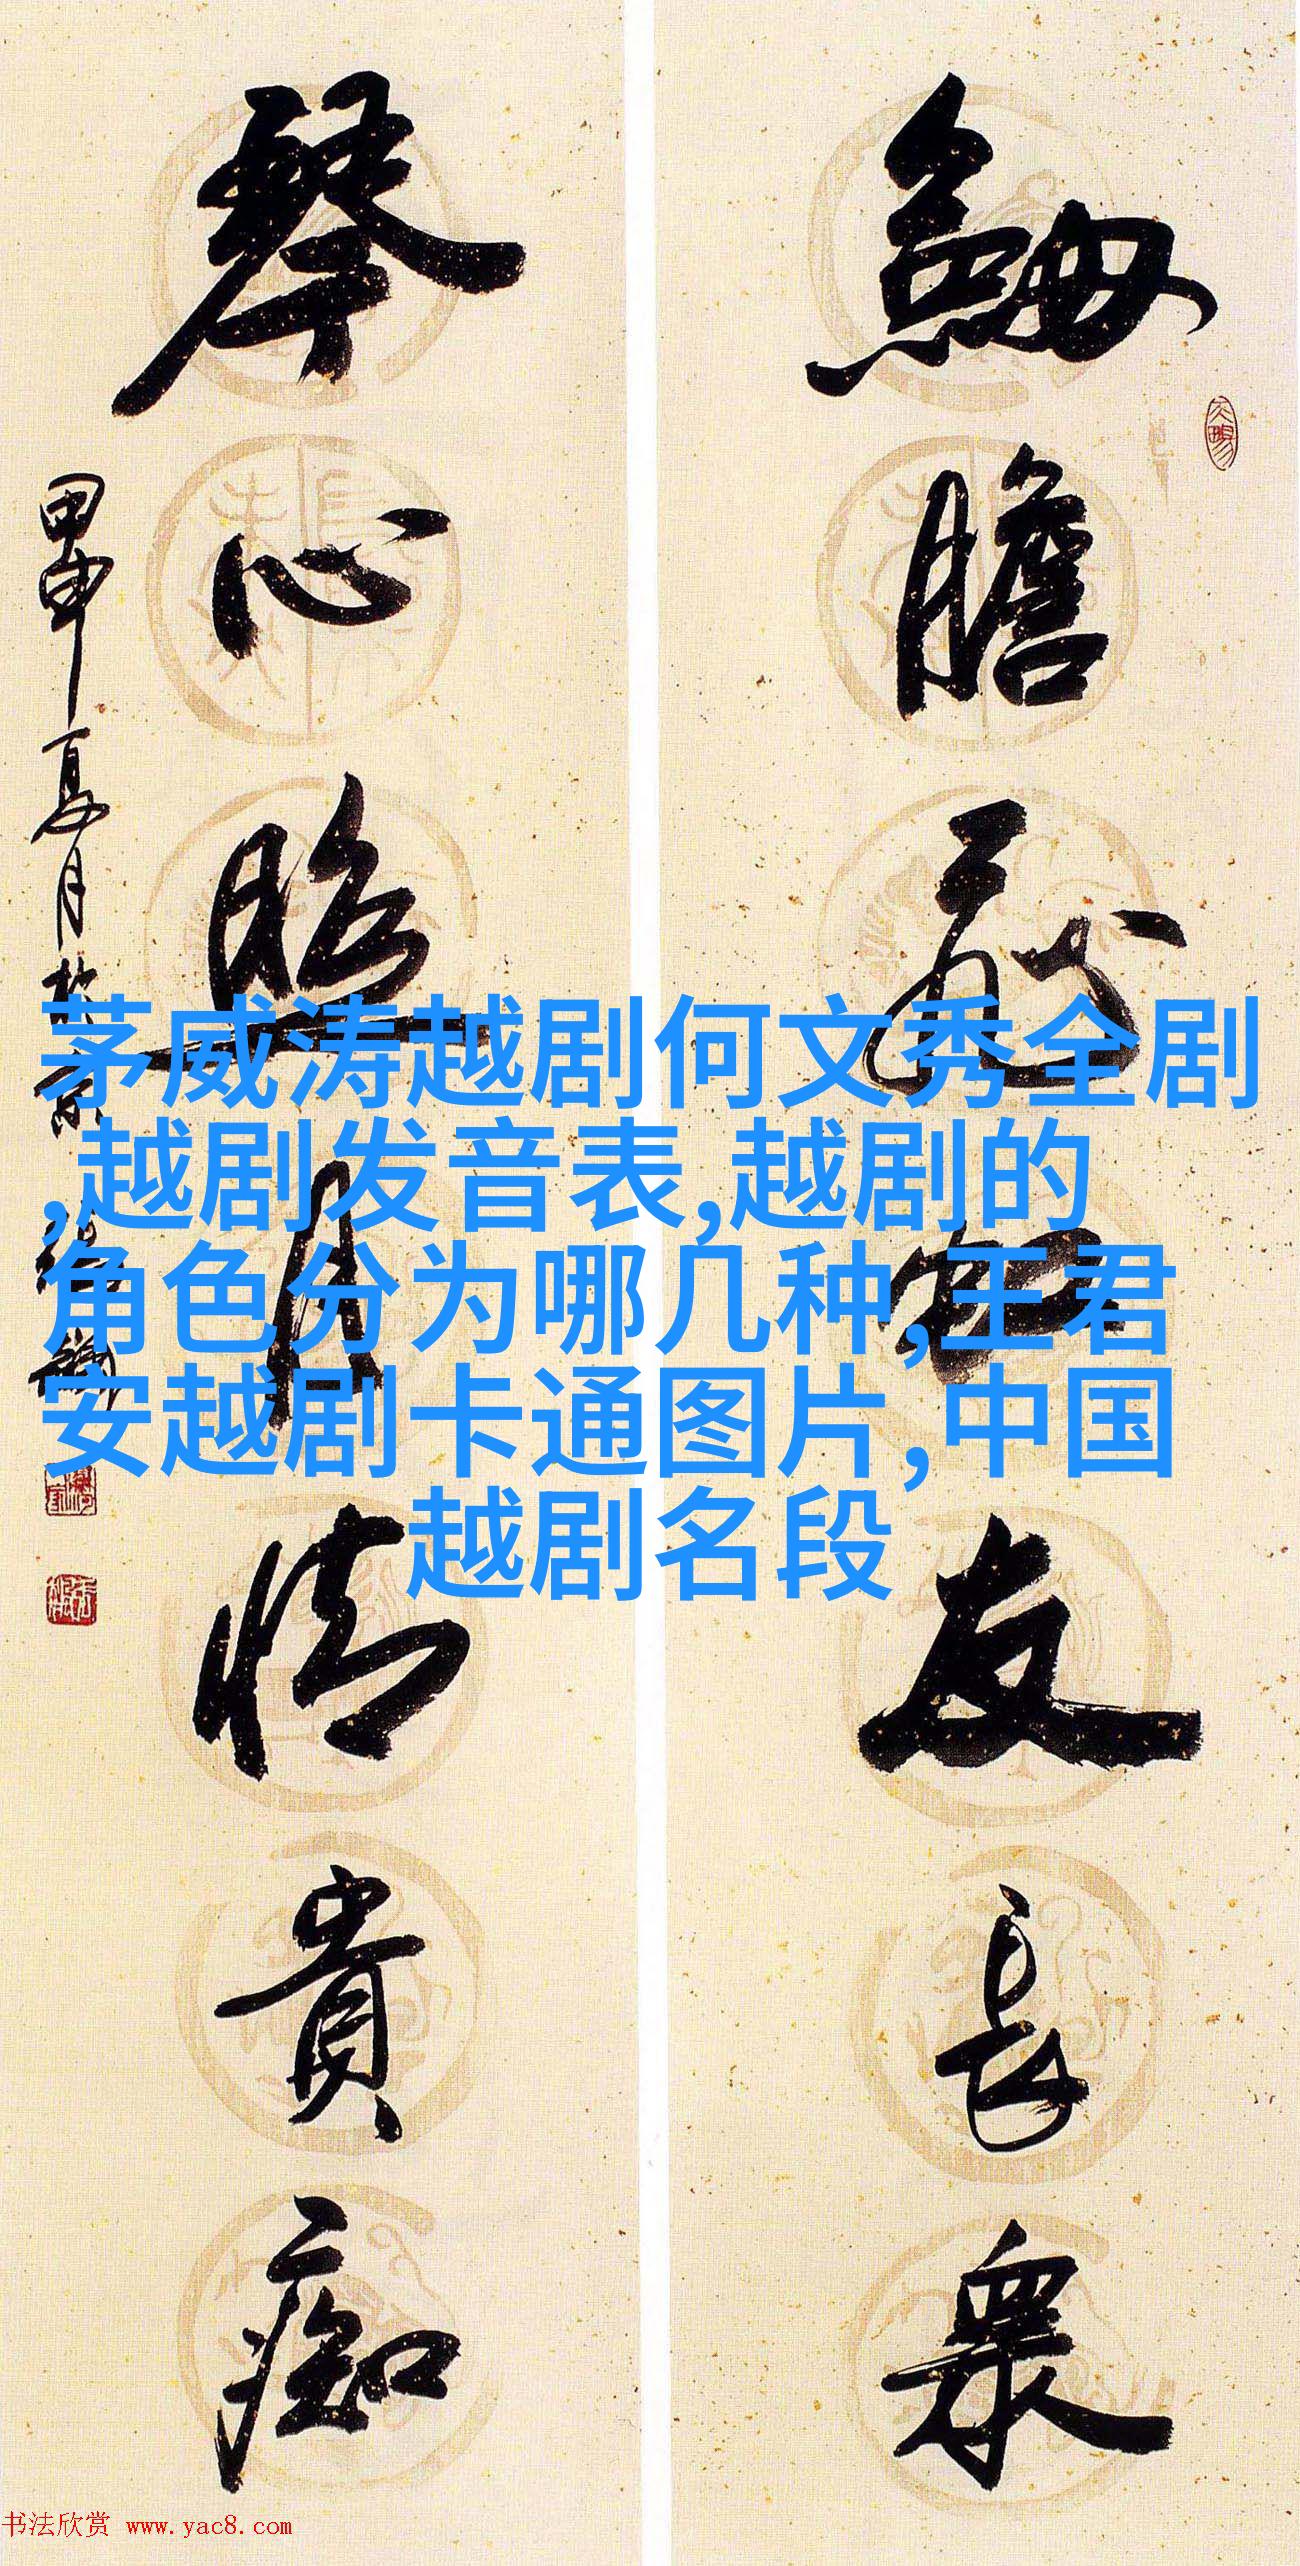 膽友長衆
琴心照月情貴痴
甲申夏月於京
茅威涛越剧何文秀全剧
,越剧发音表,越剧的
角色分为哪几种,王君
安越剧卡通图片,中国
越剧名段
书法欣赏 www.yac8.com